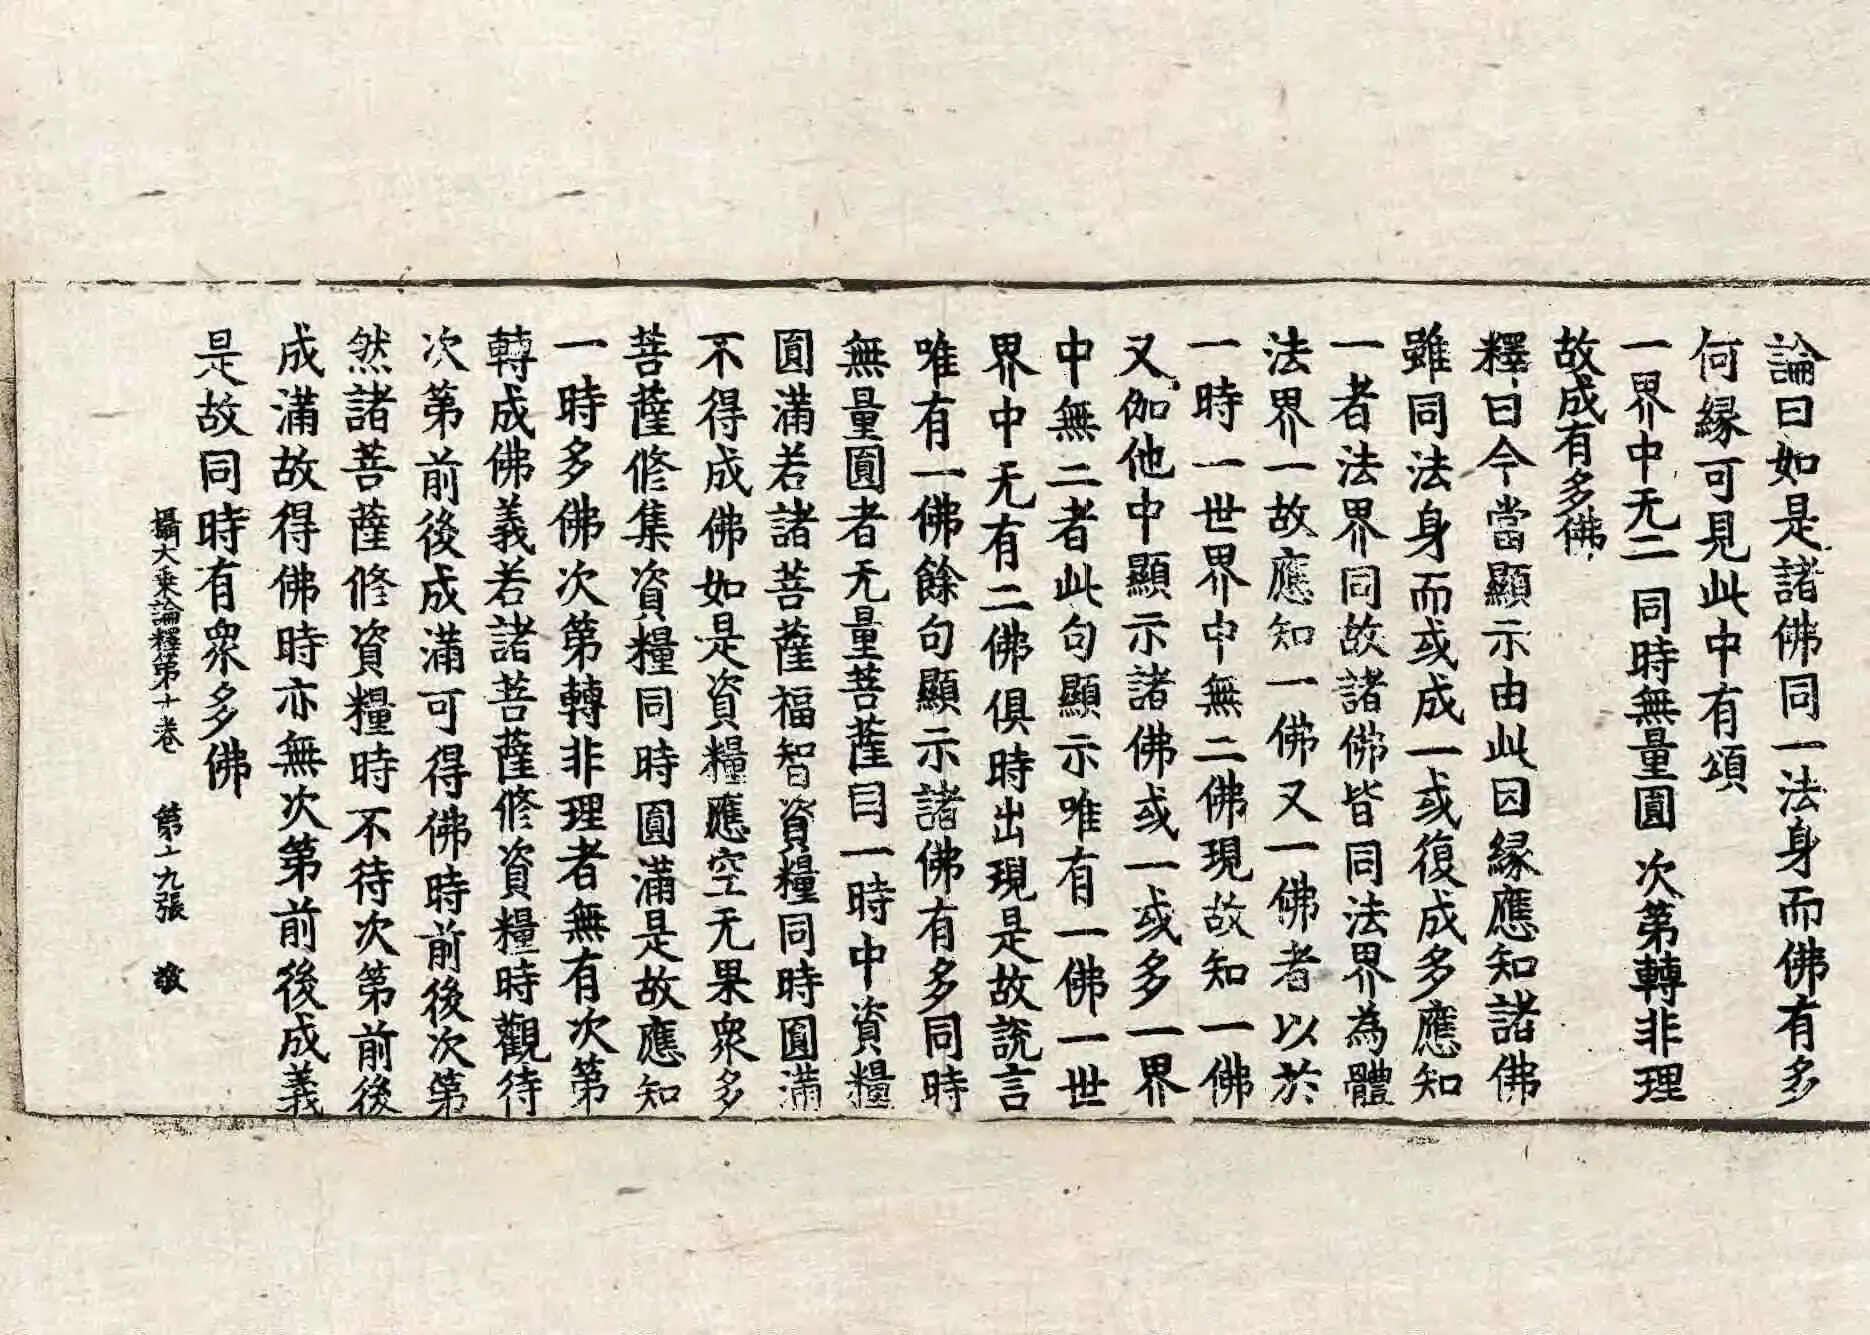 論曰如是諸佛同一法身而佛有多
何緣可見此中有頌
一界中无二 同時無量圓 次第轉非理
故成有多佛
釋曰今當顯示由此因緣應知諸佛
雖同法身而或成一或復成多應知
一者法界同故諸佛皆同法界為體
法界一故應知一佛又一佛者以於
一時一世界中無二佛現故知一佛
又伽他中顯示諸佛或一或多一界
中無二者此句顯示唯有一佛一世
界中无有二佛俱時出現是故說言
唯有一佛餘句顯示諸佛有多同時
無量圓者无量菩薩曰一時中資糧
圓滿若諸菩薩福智資糧同時圓滿
不得成佛如是資糧應空无果眾多
菩薩修集資糧同時圓滿是故應知
一時多佛次第轉非理者無有次第
轉成佛義若諸菩薩修資糧時觀待
次第前後成滿可得佛時前後次第
然諸菩薩修資糧時不待次第前後
成滿故得佛時亦無次第前後成義
是故同時有眾多佛
攝大乘論釋第十卷 第十九張 敬